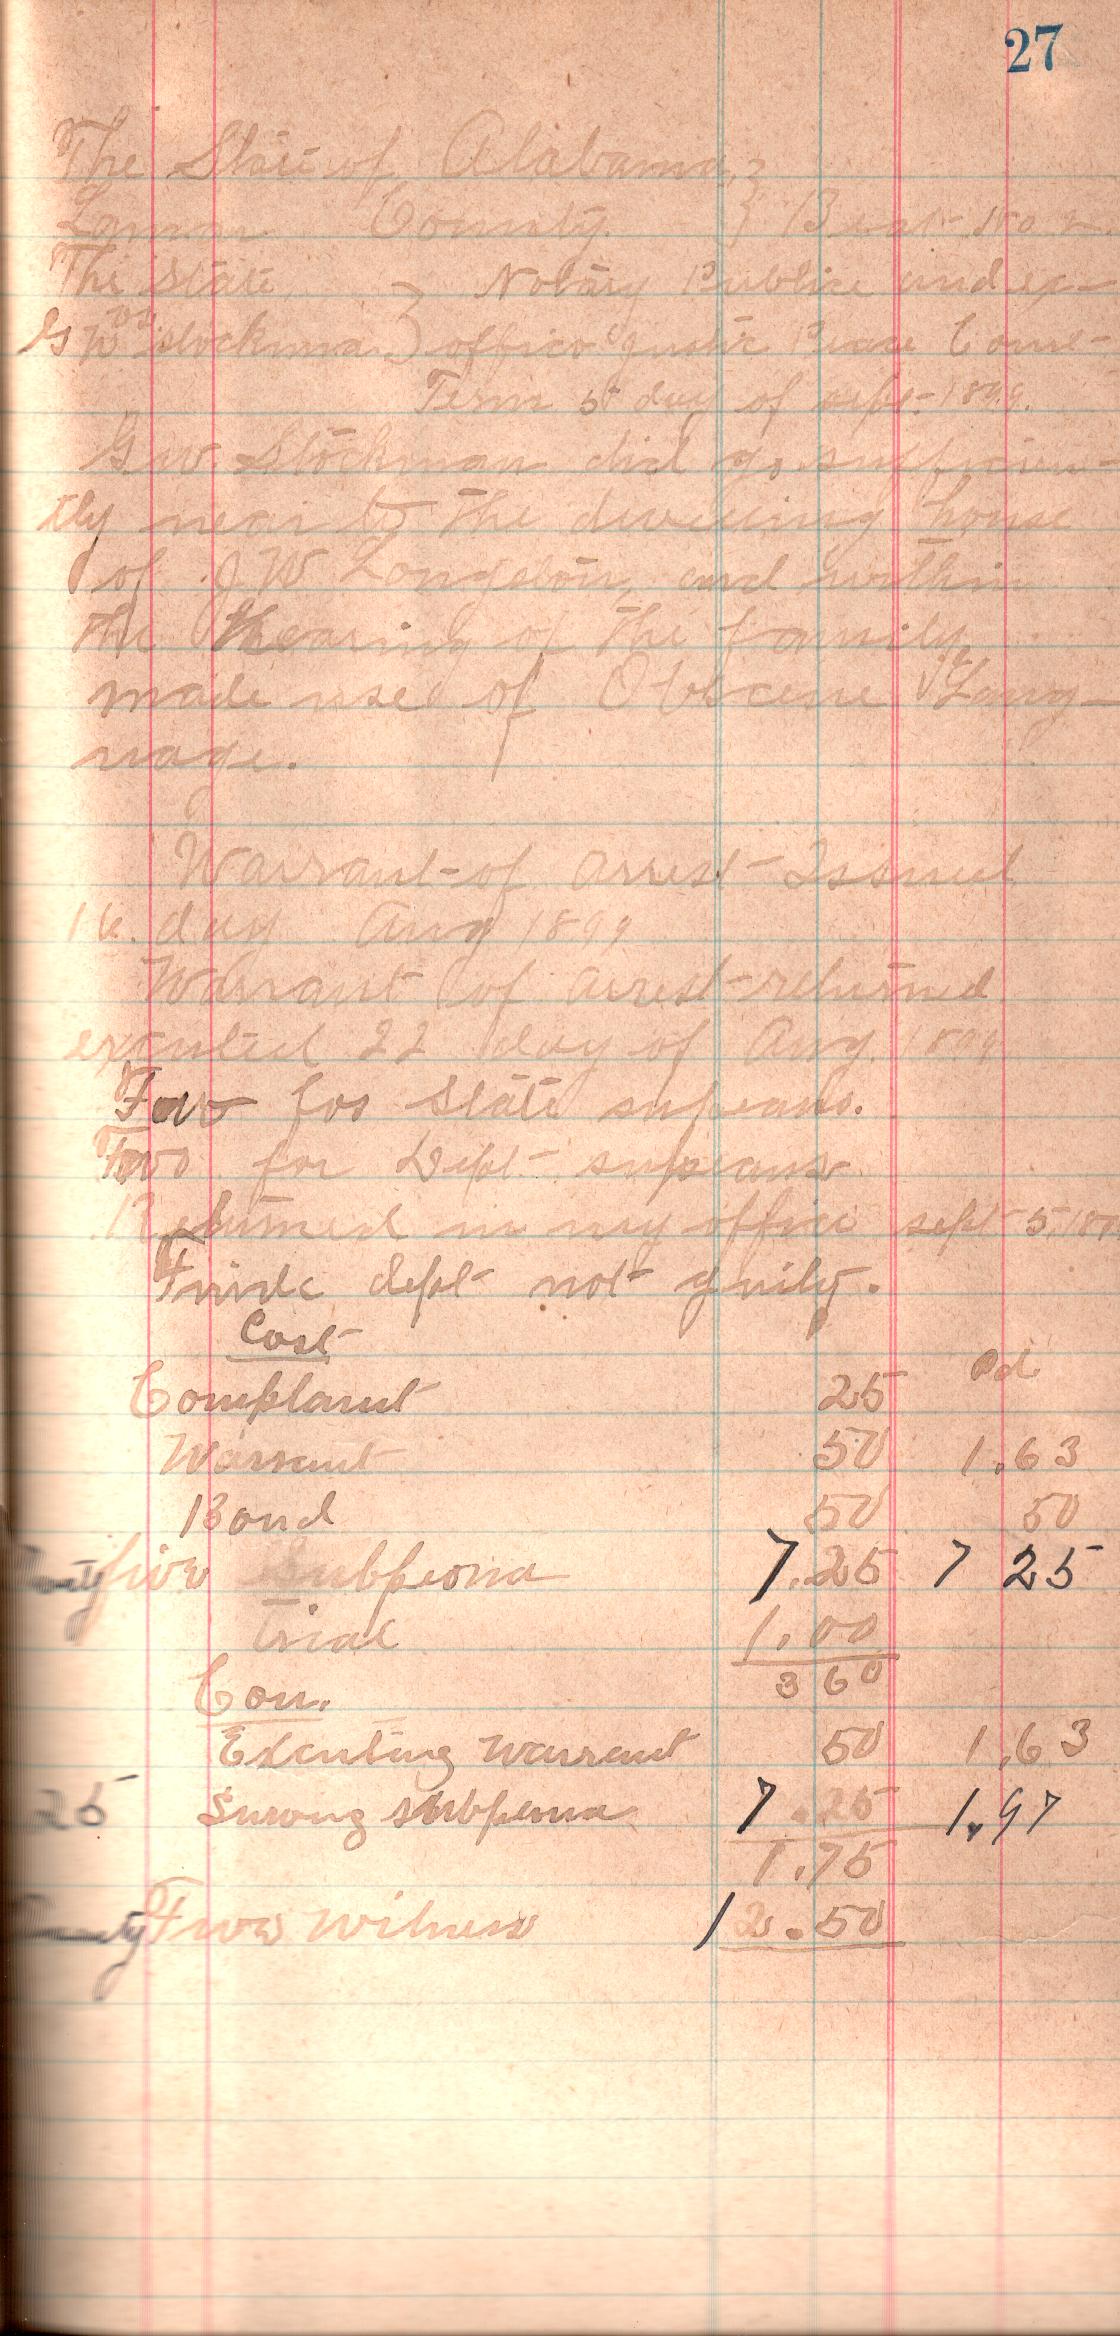 27
The State of Alabama,
Lamar County. Beat No.
The State Notary Public and ex-
vs
G W Stockman officio Justic Peace Court
Term 5 day of sept. 1899.
G. W. Stockman did go sufficien-
tly near to the dwelling house
of J W Longston, and within
the hearing of the family,
made use of Obscene Lang-
uage.
Warrant of arrest Issued
16. day Aug 1899
Warrant of arrest returned
excuted 22 day of Aug. 1899
for State supeans.
Two for Deft supeans
Returned in my office sept 5, 18
deft not guilty.
Cost
Pd
Complant 25
Warrant 50 1.63
Bond 50 50
five Subpeona 7.25 7 25
Trial 1.00
3 60
Con.
Excuting Warrant 50 1.63
25 subpeona 7.25 1.97
1.75
Witness 12.50